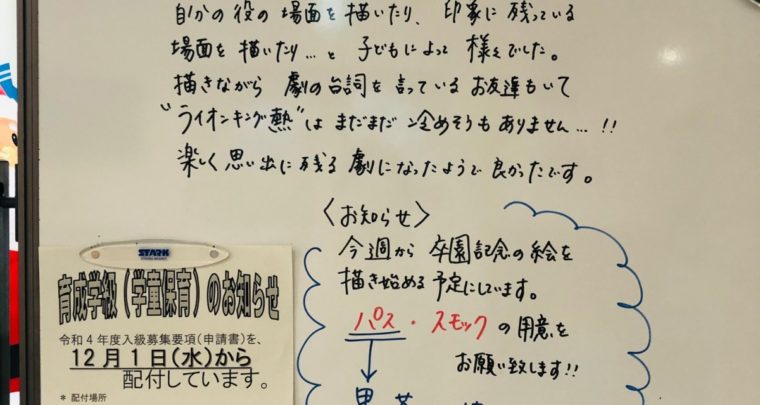 自分の役の場面を描いたり、印象に残っている
場面を描いたり…と子どもによって様々でした。
描きながら劇の台詞を言っているお友達もいて
"ライオンキング熱"はまだまだ冷めそうもありません…!!
楽しく思い出に残る劇になったようで良かったです。
〈お知らせ〉
今週から卒園記念の絵を
描き始める予定にしています。
パス・スモックの用意を
お願い致します!!
STARK
育成学級(学童保育)のお知らせ
令和4年度入級募集要項(申請書)を、
12月1日(水)から
配付しています。
* 配付場所